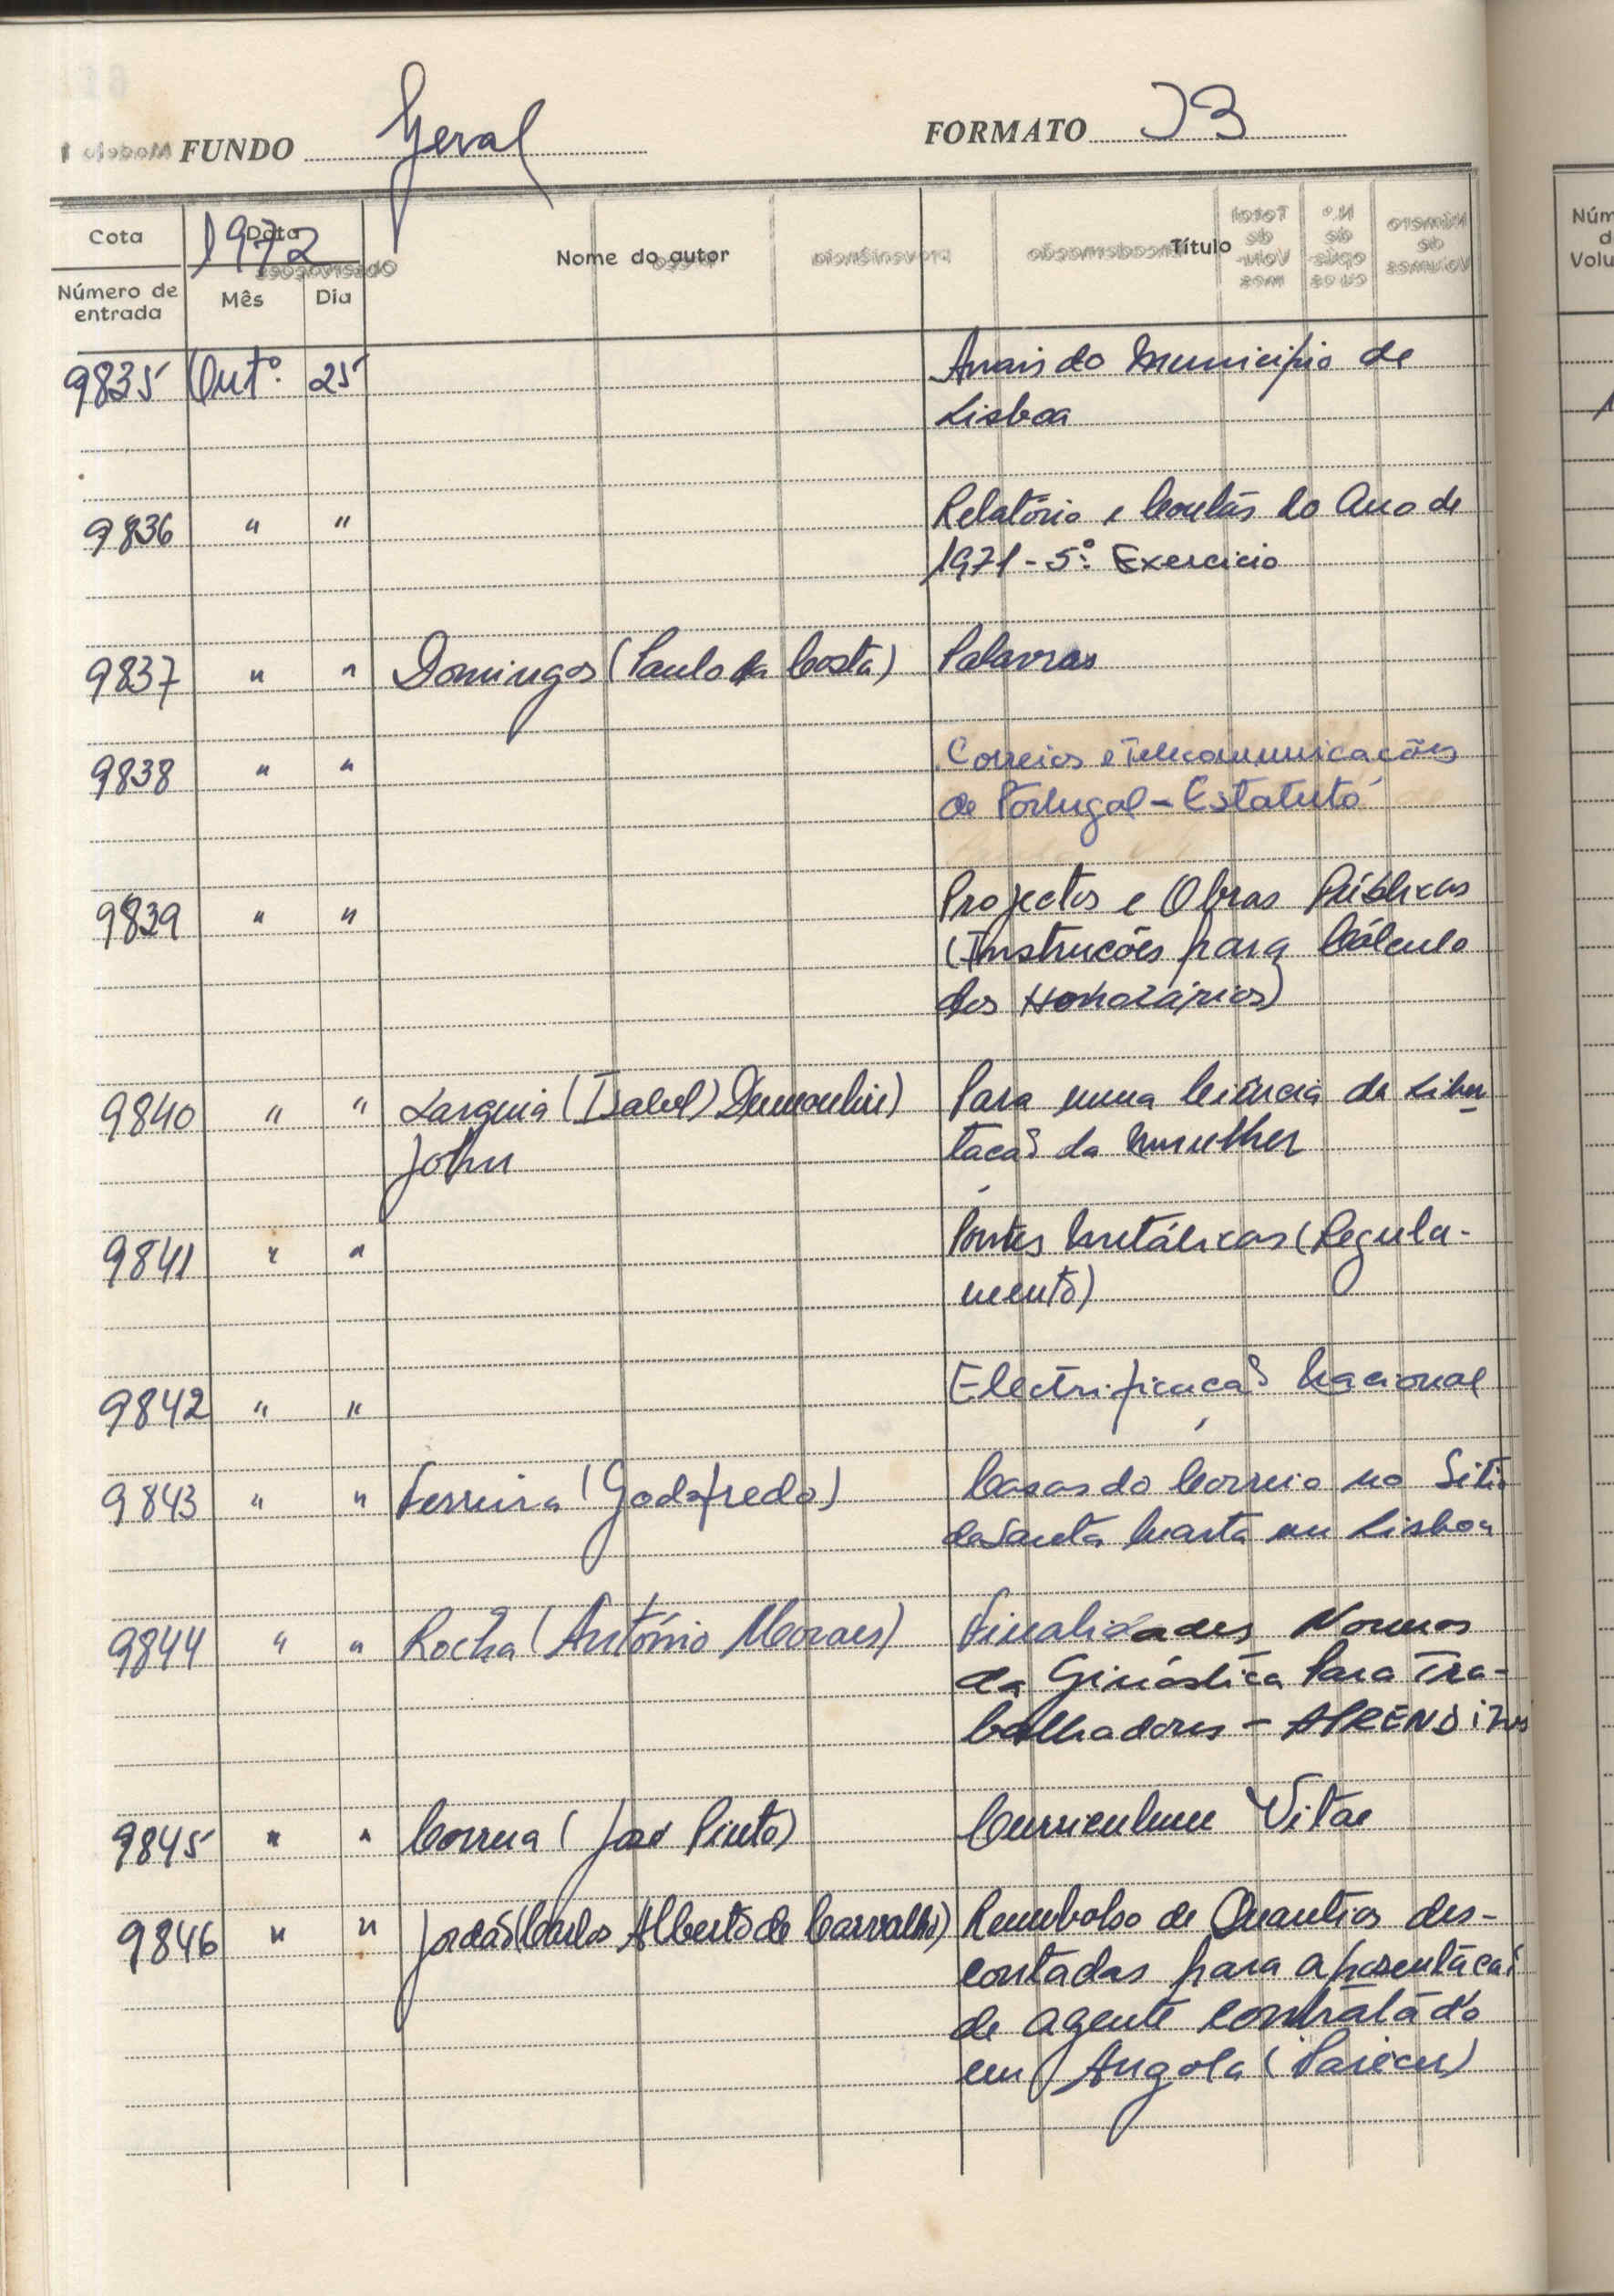 FUNDO Geral FORMATO J3
Cota Data 1972 Nome do autor Título
Número de entrada Mês Dia
9835 Outº. 25 Anais do Município de
Lisboa
9836 " " Relatório e Contas do Ano de
1971 - 5º. Exercício
9837 " " Domingos (Paulo da Costa) Palavras
9838 " " Correios e Telecomunicações
de Portugal - Estatuto
9839 " " Projectos e Obras Públicas
(Instruções para Cálculo
dos Honorários)
9840 " " Larguia (Isabel) Dumoulin)
John
Para uma Ciência da Liber
tação da Mulher
9841 " " Pontes Metálicas (Regula-
mento)
9842 " " Electrificação Nacional
9843 " " Ferreira (Godofredo) Casas do Correio no Sitio
da Santa Marta em Lisboa
9844 " " Rocha (António Moraes) Finalidades Normas
da Ginástica Para Tra-
balhadores - APRENDizes
9845 " " Correia (José Pinto) Curriculum Vitae
9846 " " Jordão (Carlos Alberto de Carvalho) Reembolso de Quantias des-
contadas para aposentação
de agente contratado
em Angola (Parecer)
Núm
d
Volu